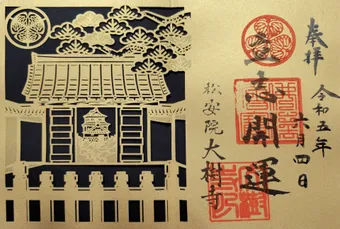 奉拝
令和五年
六月四日
立志開運
松安院大樹寺